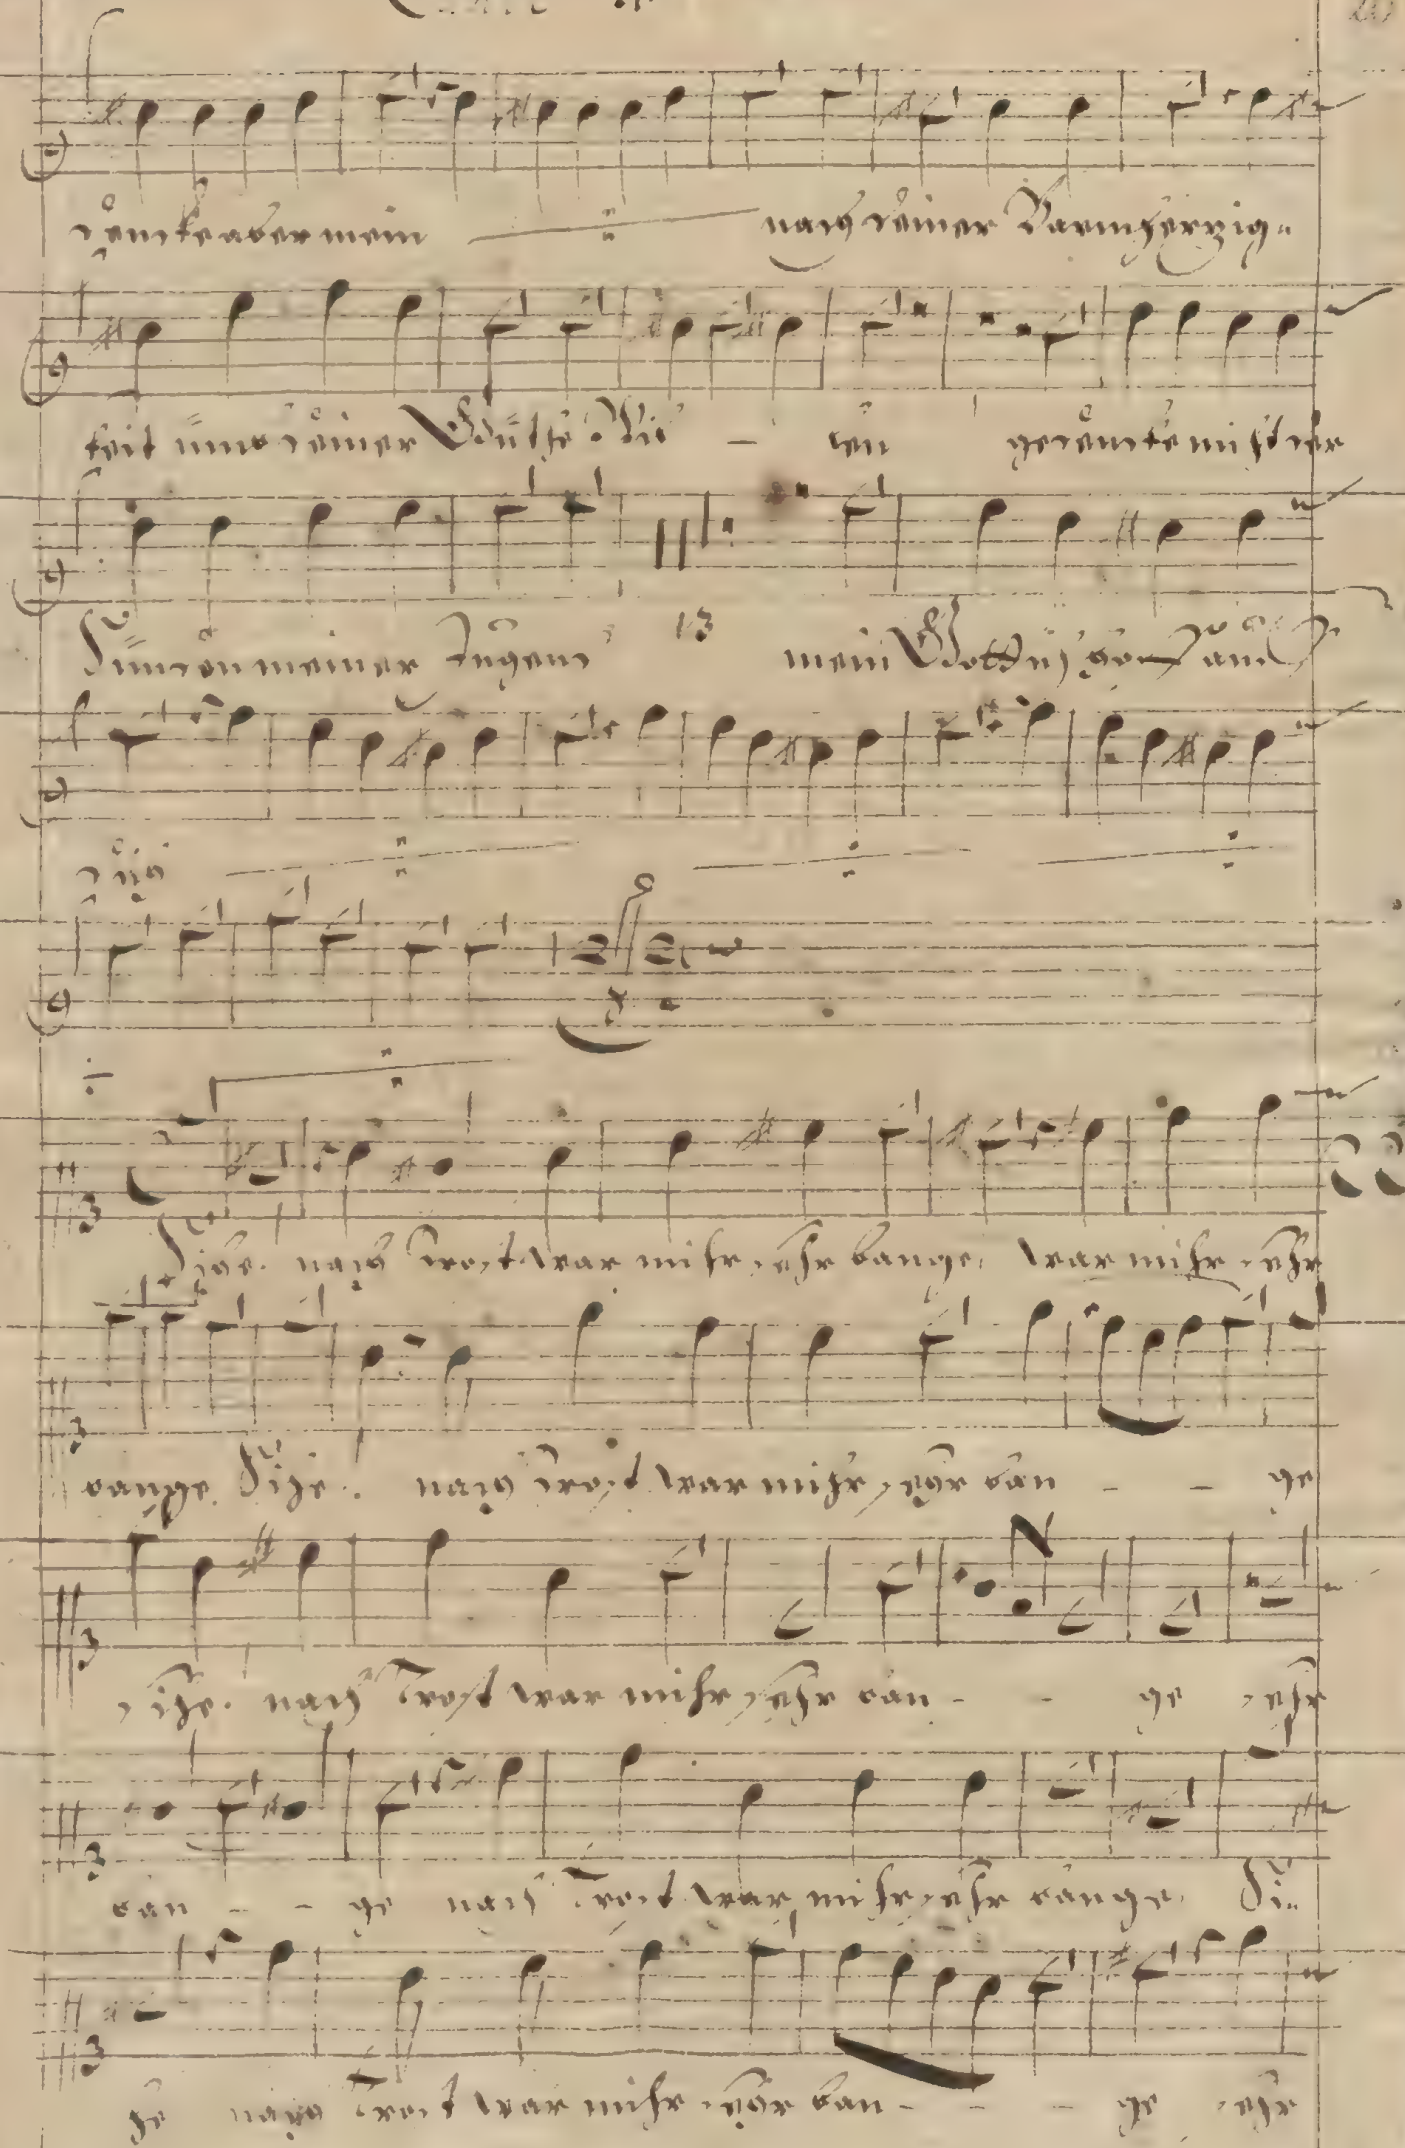 dencke aber mein nach deiner Barmhertzig=
keit ümb deiner Gütte Wil - len gedencke nicht der
Sünden meiner Jugend 13 mein Gott
dich
Sihe. nach Trost war mihr sehr bange, war mihr sehr
bange. Sihe. nach Trost war mihr sehr ban - - ge
sihe. nach Trost war mihr sehr ban - - ge sehr
ban - - ge nach Trost war mihr sehr bange. Si=
he nach Trost war mihr sehr ban - - - ge sehr